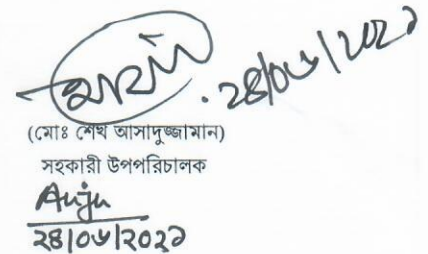 ২৪/০৬/২০২১
(মোঃ শেখ আসাদুজ্জামান)
সহকারী উপপরিচালক
Anju
২৪/০৬/২০২১